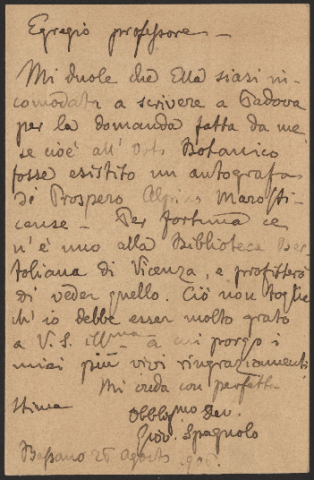 Egregio professore –
Mi duole che Ella siasi in-
comodata a scrivere a Padova
per la domanda fatta da me
se cioè all' Orto Botanico
fosse esistito un autografo
di Prospero Alpino Marosti-
cense – Per fortuna ce
n'è uno alla Biblioteca Ber-
toliana di Vicenza, e profitterò
di veder quello. Ciò non toglie
ch' io debba esser molto grato
a V. S. Illma a cui porgo i
miei più vivi ringraziamenti
Mi creda con perfetta
stima
Obblgmo Dev.
Giov. Spagnolo
Bassano 25 Agosto